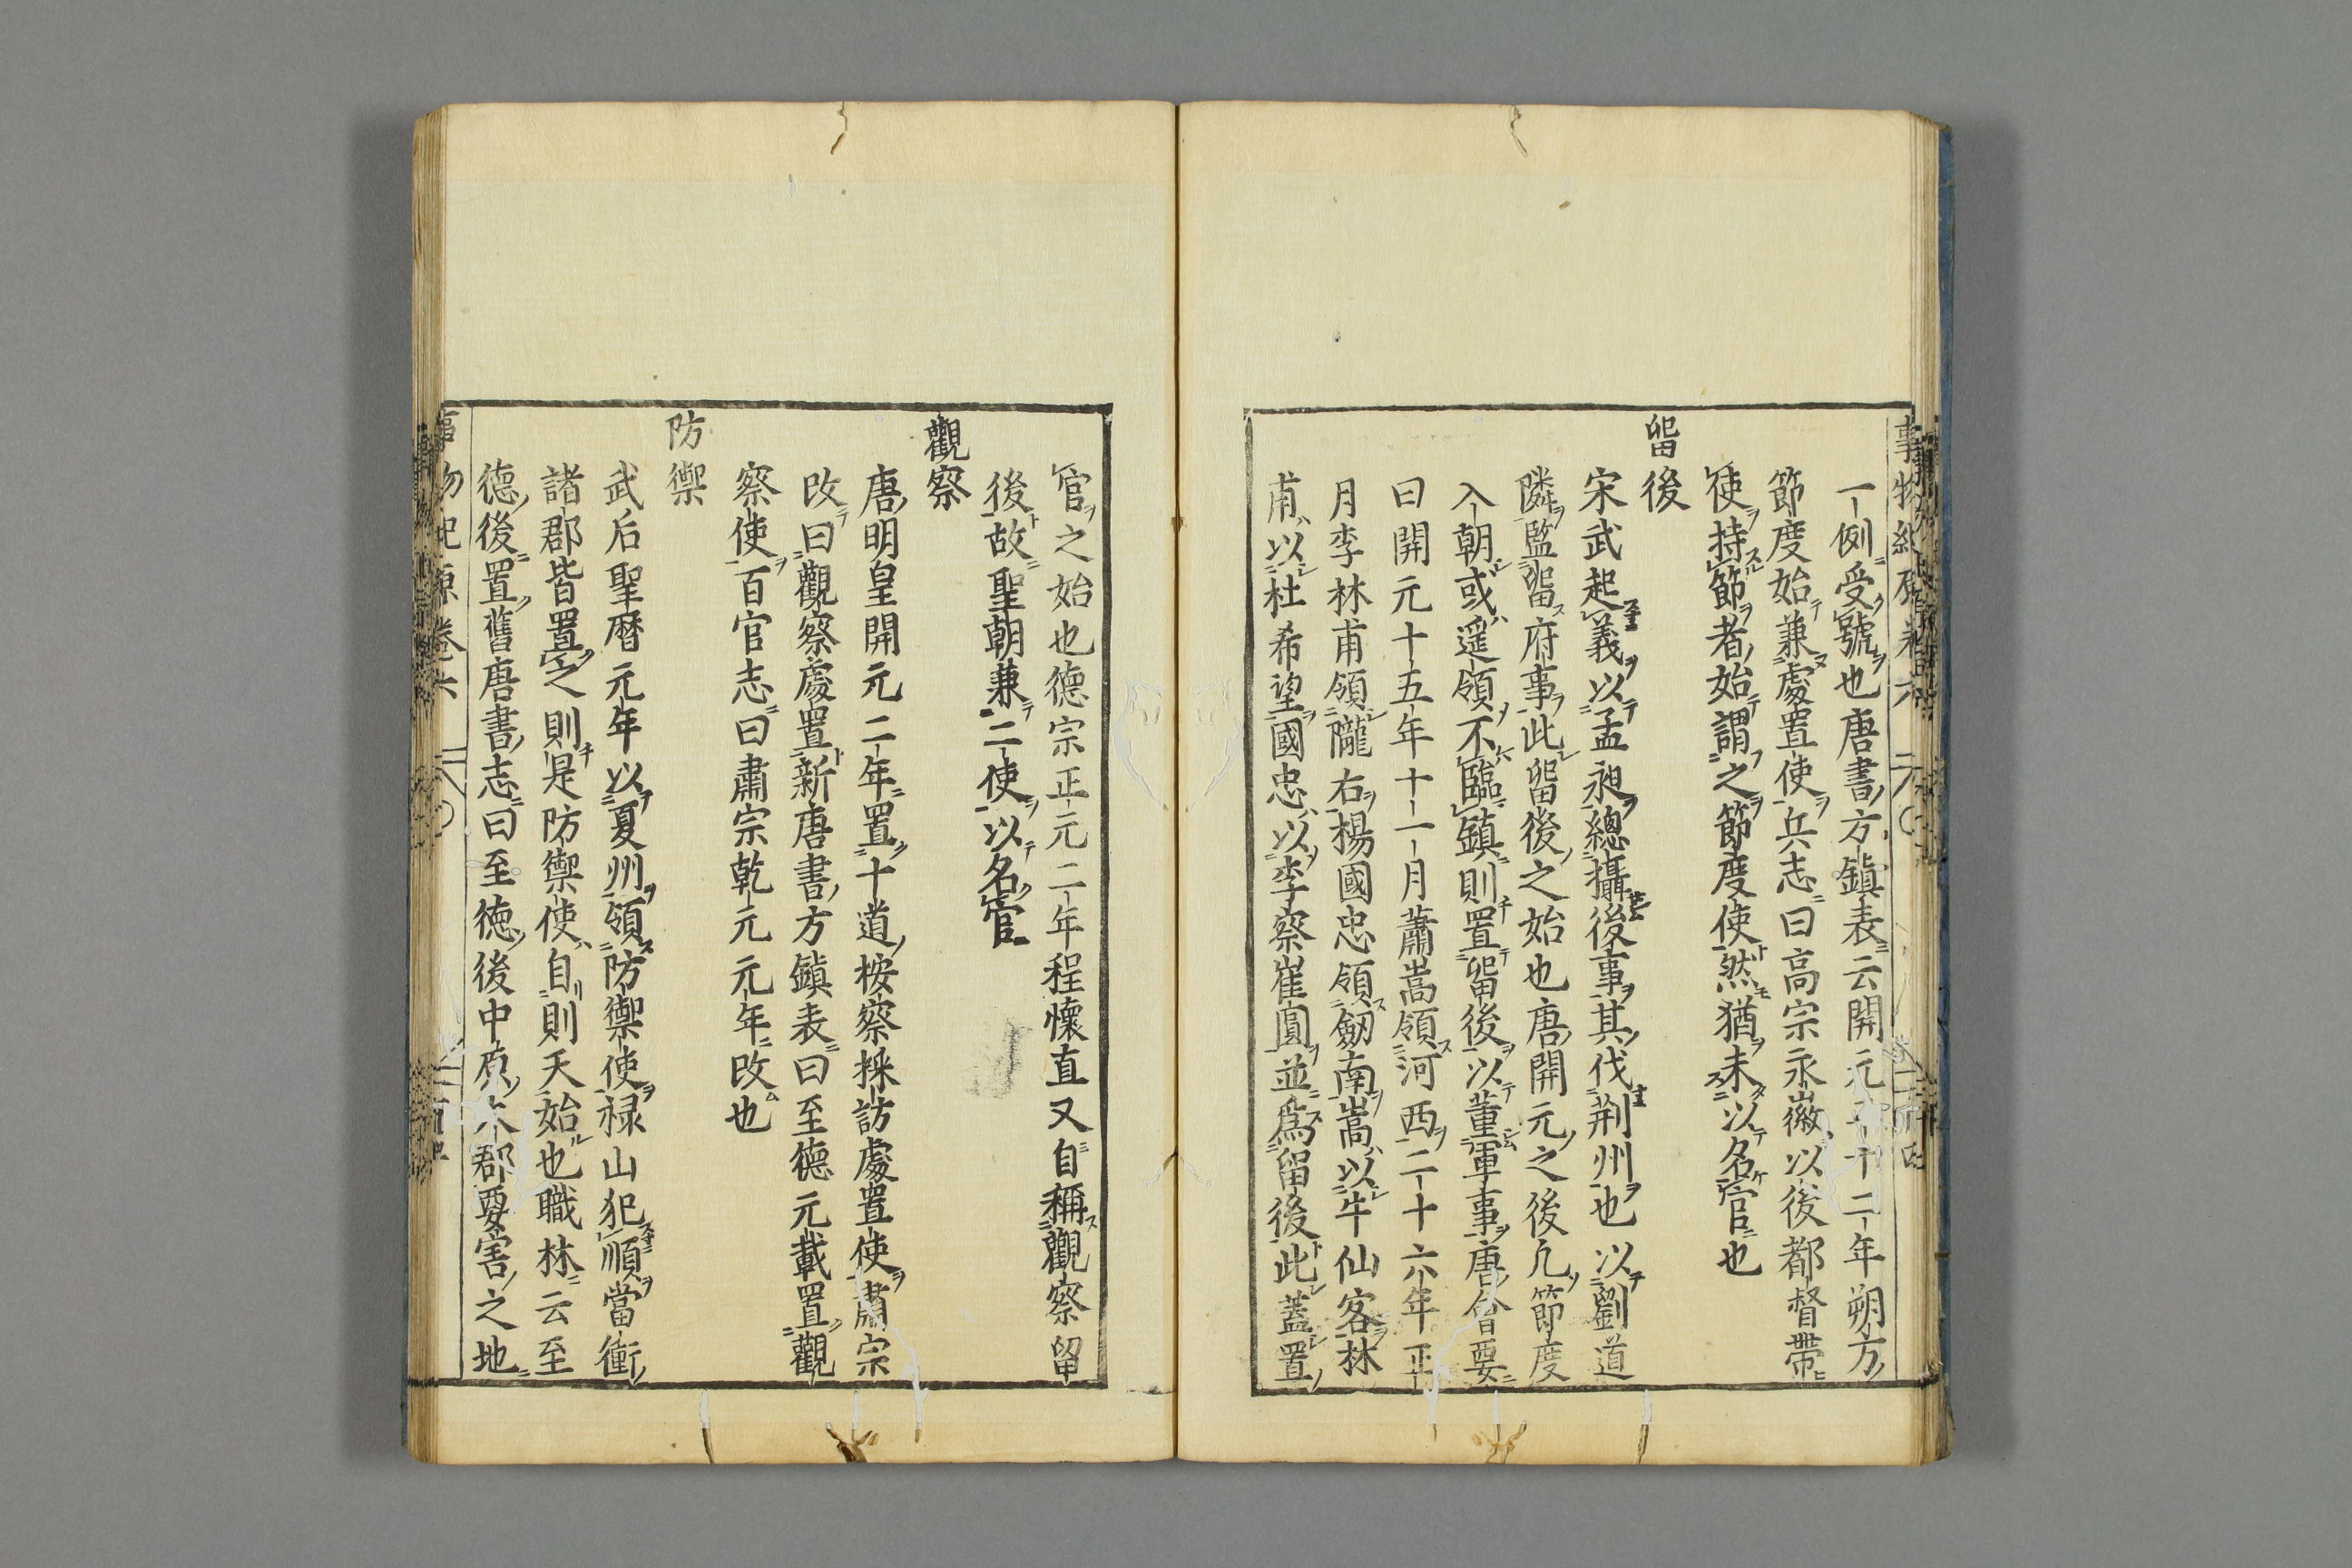 一例受號也唐書方鎮表云開元二十二年朔方
節度始兼處置使兵志曰高宗永徽以後都督帶
使持節者始謂之節度使然猶未以名官也
留後
宋武起義以孟昶總攝後事其伐荆州也以劉道
隣監留府事此留後之始也唐開元之後凡節度
入朝或遥領不臨鎮則置留後以董軍事唐會要
曰開元十五年十一月蕭嵩領河西二十六年正
月李林甫領隴右楊國忠領劒南嵩以牛仙客林
甫以杜希望國忠以李察崔圓並爲留後此蓋置
官之始也德宗正元二年程懷直又自稱觀察留
後故聖朝兼二使以名官
觀察
唐明皇開元二年置十道桉察採訪處置使肅宗
改曰觀察處置新唐書方鎮表曰至德元載置觀
察使百官志曰肅宗乾元元年改也
防禦
武后聖曆元年以夏州領防禦使禄山犯順當衝
諸郡皆置之則是防禦使自則天始也職林云至
德後置舊唐書志曰至德後中原大郡要害之地